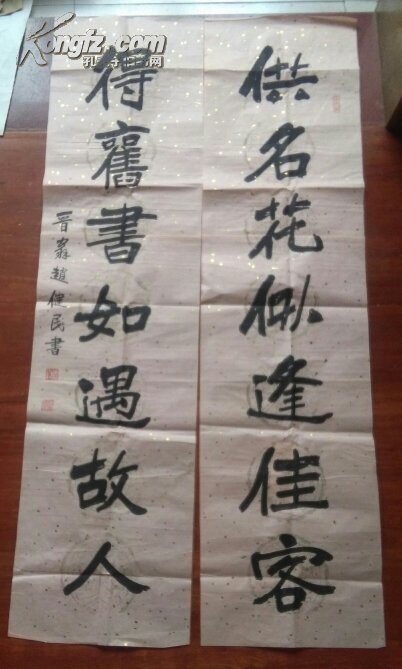 供名花似逢佳客
得舊書如遇故人
晋翁趙健民書
Kongfz.com
孔夫子旧书网